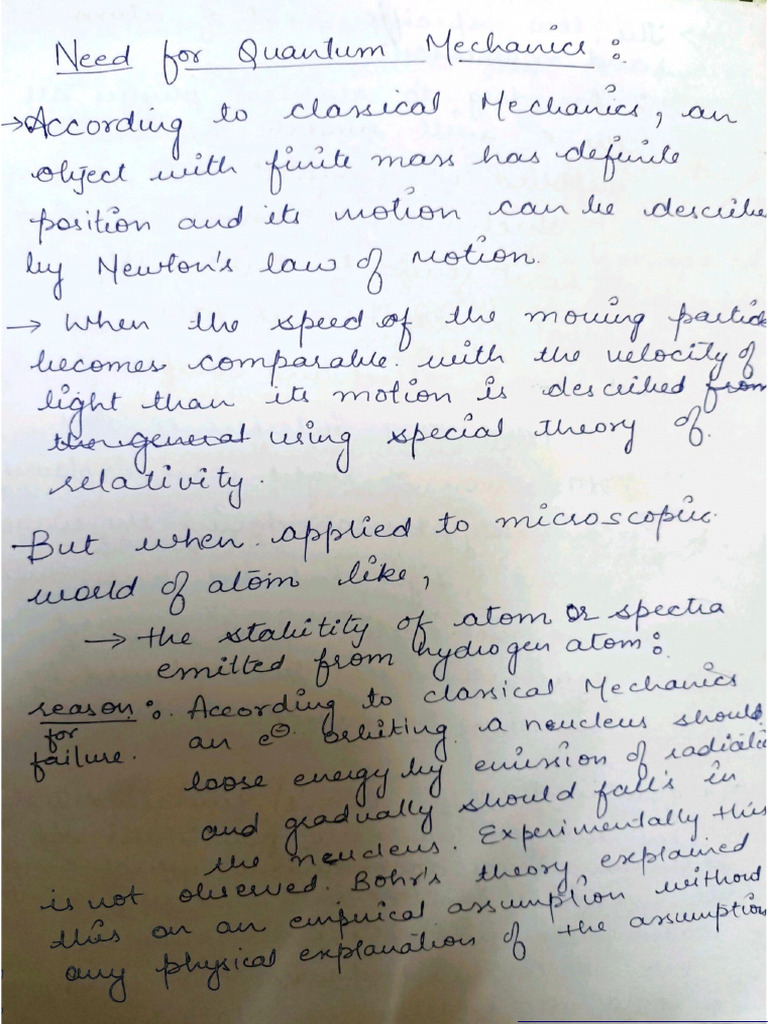 Need for Quantum Mechanics :
→ According to classical Mechanics, an
object with finite mass has definite
position and its motion can be describe
by Newton's law of motion.
→ When the speed of the moving particle
becomes comparable with the velocity of
light than its motion is described from
the general using special theory of
relativity.
But when applied to microscopic
world of atom like,
→ the stability of atom or spectra
emitted from hydrogen atom :
reason :. According to classical Mechanics
for
failure. an e⊖ orbiting a neucleus should
loose energy by emission of radiatio
and gradually should falls in
the neucleus. Experimentally this
is not observed. Bohr's theory, explained
this on an empirical assumption without
any physical explanation of the assumption